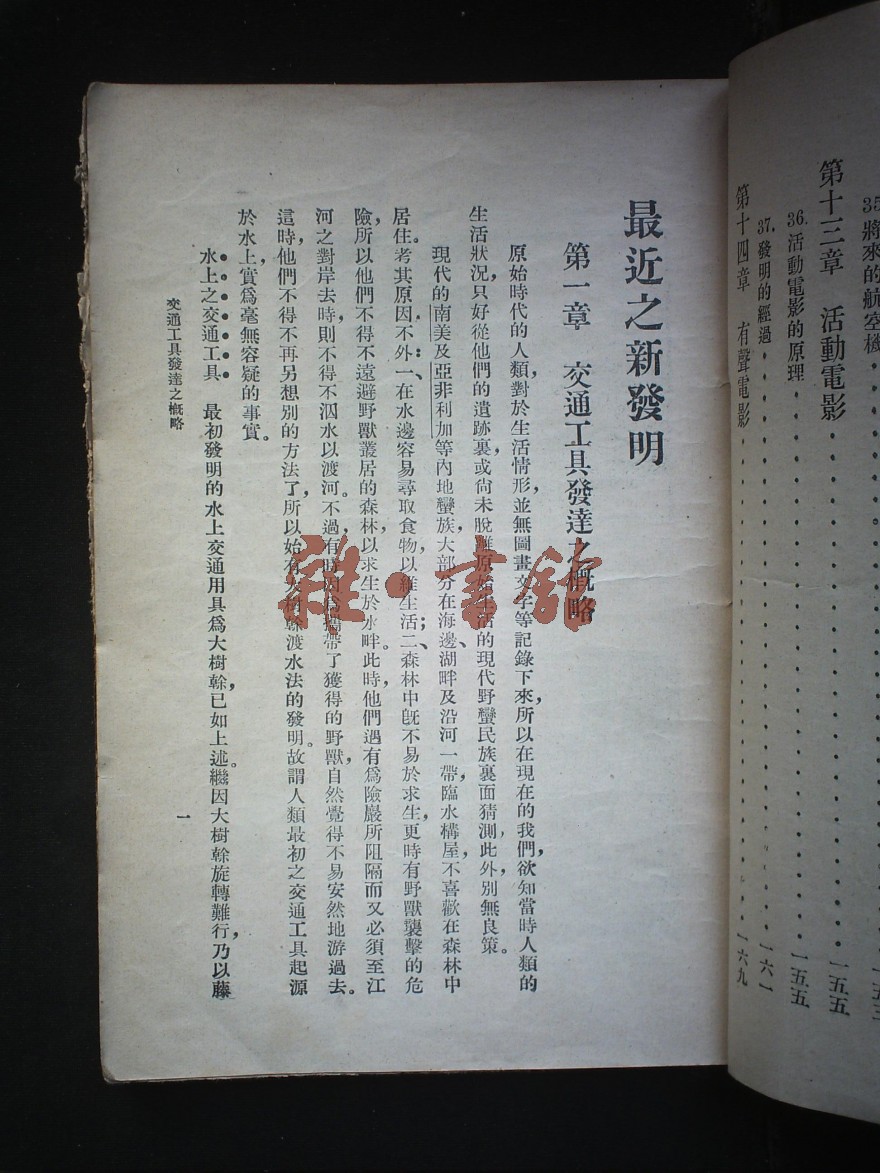 35.將來的航空機
一五三
第十三章　活動電影
一五五
36.活動電影的原理
一五五
37.發明的經過
一六一
第十四章　有聲電影
一六九
最近之新發明
第一章　交通工具發達之概略
原始時代的人類，對於生活情形，並無圖畫文字等記錄下來，所以在現在的我們，欲知當時人類的
生活狀況，只好從他們的遺跡裏，或尙未脫離原始生活的現代野蠻民族裏面猜測，此外別無良策。
現代的南美及亞非利加等內地蠻族，大部分在海邊湖畔及沿河一帶，臨水構屋，不喜歡在森林中
居住。考其原因，不外：一、在水邊容易尋取食物，以維生活；二、森林中旣不易於求生，更時有野獸襲擊的危
險，所以他們不得不遠避野獸叢居的森林，以求生於水畔。此時他們遇有爲險巖所阻隔，而又必須至江
河之對岸去時，則不得不泅水以渡河。不過有時因爲攜帶了獲得的野獸，自然覺得不易安然地游過去。
這時，他們不得不再另想別的方法了，所以始有大樹榦渡水法的發明。故謂人類最初之交通工具起源
於水上，實爲毫無容疑的事實。
水上之交通工具　最初發明的水上交通用具爲大樹榦，已如上述。繼因大樹榦旋轉難行，乃以藤
交通工具發達之概略
一
雜·書館